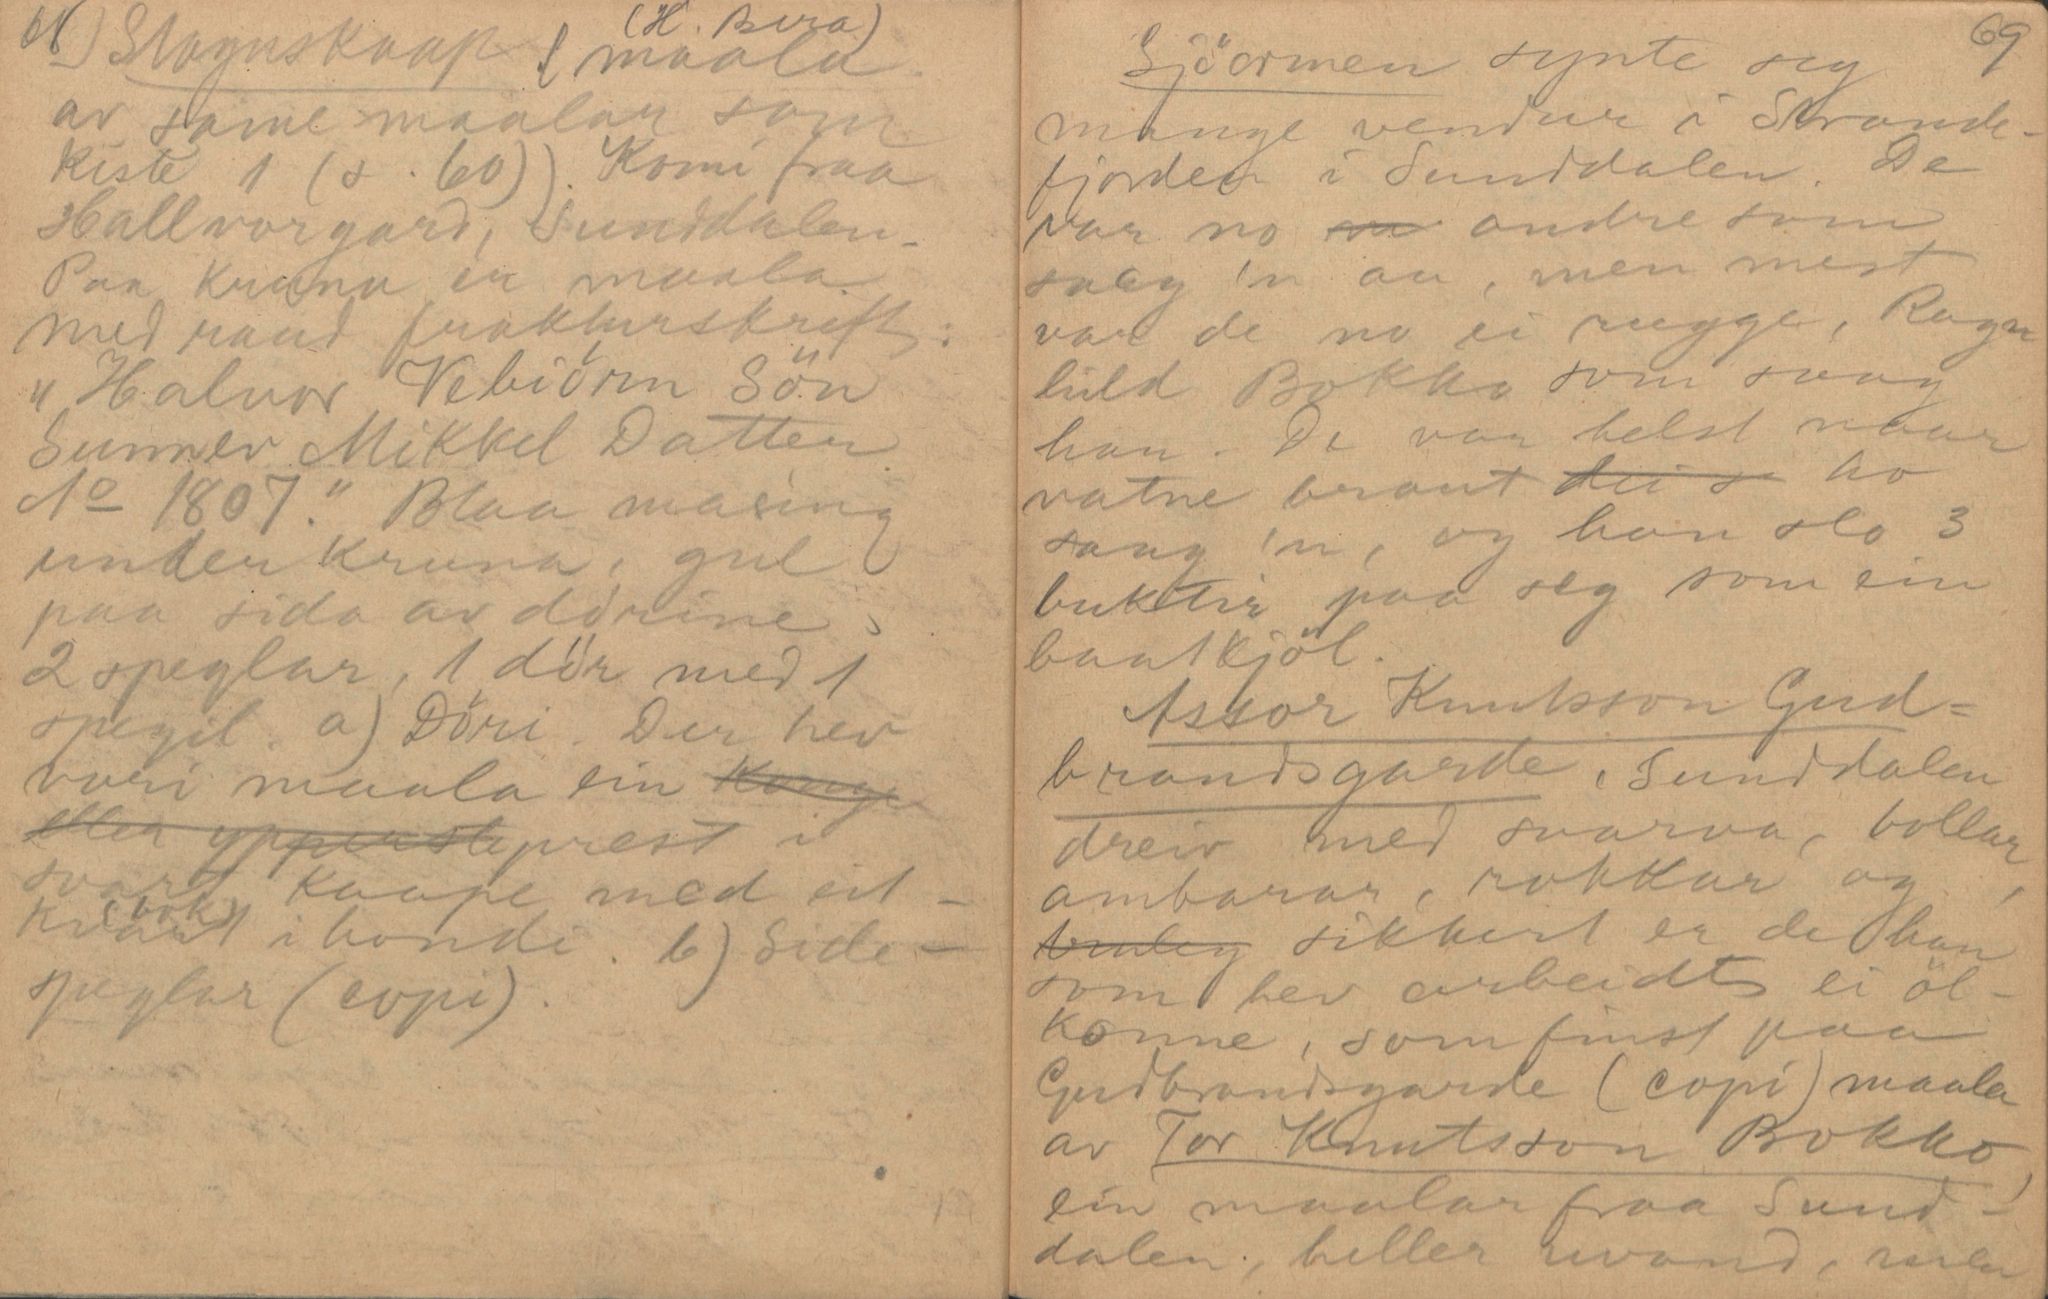 68) Slognskaap (maala
(H. Bera)
av same maalar som
Kiste 1 (s. 60)). Komi fraa
Hallvorgard, Sunddalen.
Paa Kruna er maala
med raud frakturskrift:
"Halvor Vebiörn Sön
Sunnev Mikkel Datter
No 1807." Blaa masing
under Kruna, gul
paa sida av dörine,
2 speglar, 1 dör med 1
spegil. a) Döri. Der hev
vori maala ein Konge
eller yppersteprest i
svart Kaape med eit
Kvart (bok) i hondi. b) Side-
speglar (copi).
69
Sjöormen synte seg
mange vendur i Strande-
fjorden i Sunddalen. De
var no andre som
saag 'n au, men mest
var de no ei rugge, Ragn
hild Bokko som saag
han. De var helst naar
vatne braut dei s ho
saag 'n, og han slo 3
buktir paa seg som ein
baatkjöl.
Assor Knutsson Gud-
brandsgarde, Sunddalen
dreiv med svarva, bollar,
ambarar, rokkar og
truleg sikkert er de han
som hev arbeidt ei öl-
konne, som finst paa
Gudbrandsgarde (copi) maala
av Tor Knutsson Bokko,
ein maalar fraa Sund-
dalen, heller uvand, men